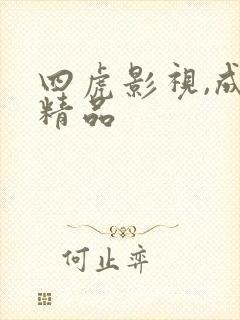 四虎影視,成
精品
何止弈